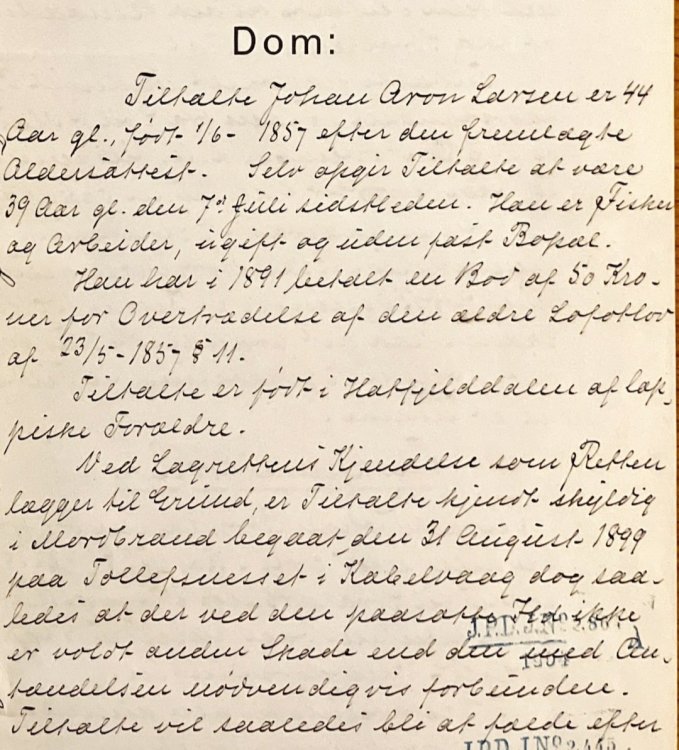 Dom:
Tiltalte Johan Aron Larsen er 44
Aar gl., født 1/6- 1857 efter den fremlagte
Aldersattest. Selv opgir Tiltalte at være
39 Aar gl. den 7de Juli sidstleden. Han er Fisker
og Arbeider, ugift og uden fast Bopæl.
Han har i 1891 betalt en Bod af 50 Kro-
ner for Overtrædelse af den ældre Lofotlov
af 23/5-1857 § 11.
Tiltalte er født i Hatfjelddalen af lap-
piske Forældre.
Ved Lagrettens Kjendelse som Retten
lægger til Grund, er Tiltalte kjendt skyldig
i Mordbrand begaat den 31 August 1899
paa Tollefsnesset i Kabelvaag dog saa-
ledes at der ved den paasatte Ild ikke
er voldt anden Skade end den med An-
tændelsen nødvendigvis forbunden.
Tiltalte vil saaledes bli at fælde efter